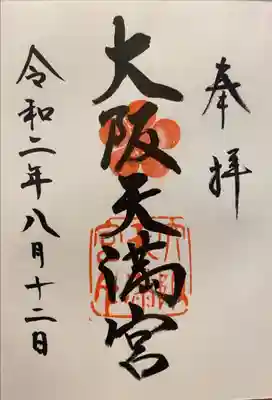 奉拝
大阪天満宮
令和二年八月十二日